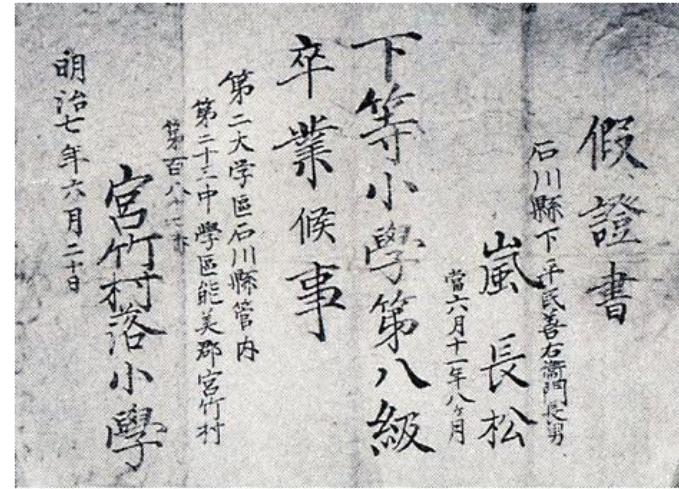 假證書
石川縣下平民善右衞門長男
嵐長松
當六月十一年八ヶ月
下等小學第八級
卒業候事
第二大学區石川縣管内
第二十三中學區能美郡宮竹村
第百八十
宮竹村落小學
明治七年六月二十日